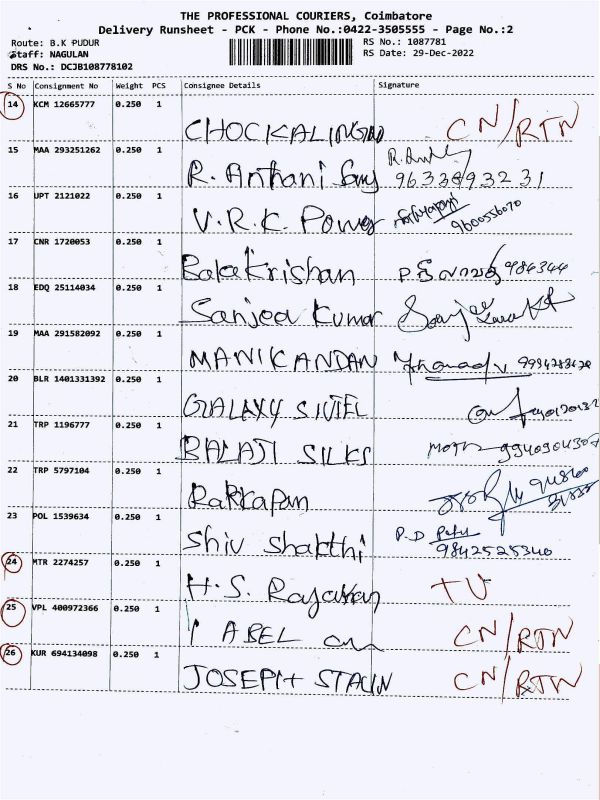 THE PROFESSIONAL COURIERS, Coimbatore
Delivery Runsheet - PCK - Phone No.:0422-3505555 - Page No.:2
Route: B.K PUDUR
RS No.: 1087781
Staff: NAGULAN
RS Date: 29-Dec-2022
DRS No.: DCJB108778102
S No Consignment No Weight PCS Consignee Details Signature
14 KCM 12665777 0.250 1
CHOCKALINGAM CN/RTN
15 MAA 293251262 0.250 1
R. Anthani Samy
16 UPT 2121022 0.250 1
V.R.K. Power 9600556070
17 CNR 1720053 0.250 1
BalaKrishan 984344
18 EDQ 25114034 0.250 1
Sanjeea Kumar
19 MAA 291582092 0.250 1
MANIKANDAN
20 BLR 1401331392 0.250 1
GALAXY
21 TRP 1196777 0.250 1
BALAJI SILKS
22 TRP 5797104 0.250 1
Rakkapan
23 POL 1539634 0.250 1
Shiv Shakthi P.D 9842525340
24 MTR 2274257 0.250 1
H.S. TU
25 VPL 400972366 0.250 1
ABEL CN/RTN
26 KUR 694134098 0.250 1
JOSEPH STALIN CN/RTN